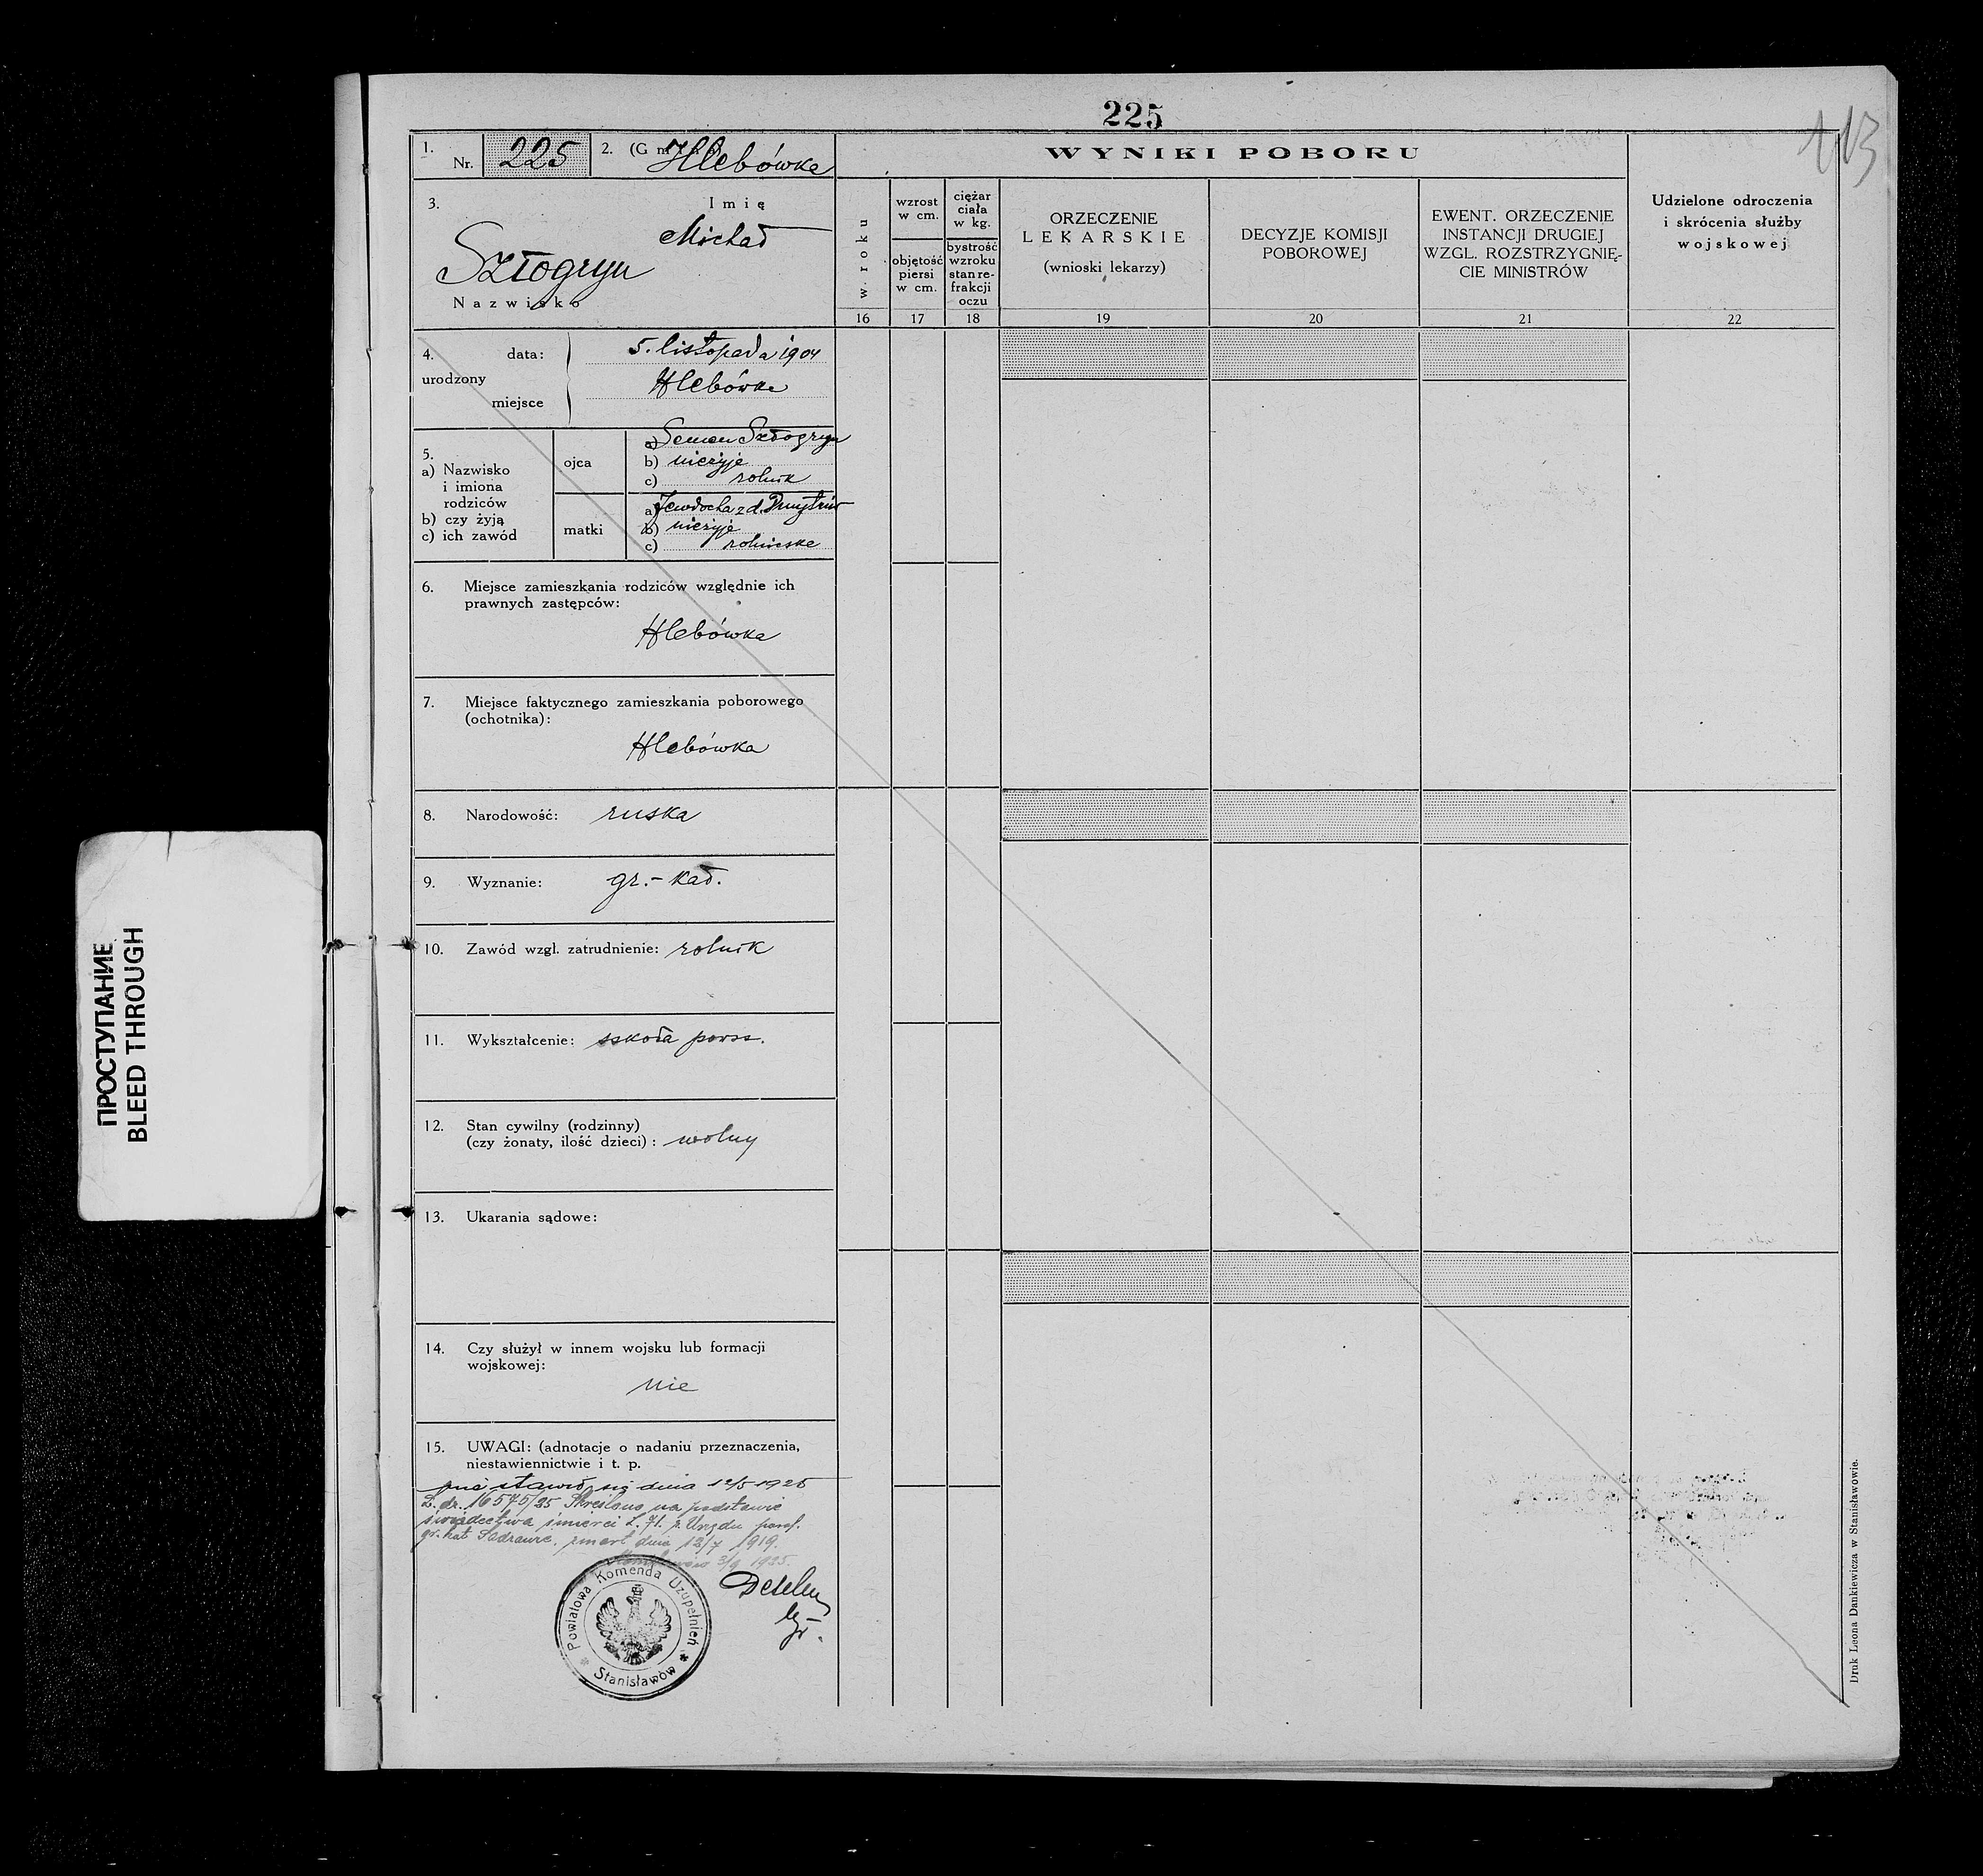 225
113
1. Nr. 225 2. (Gm Hlebówka
3. Imię
Michał
Szłogryn
Nazwisko
WYNIKI POBORU
w roku
wzrost
w cm.
objętość
piersi
w cm.
ciężar
ciała
w kg.
bystrość
wzroku
stan re-
frakcji
oczu
ORZECZENIE
LEKARSKIE
(wnioski lekarzy)
DECYZJE KOMISJI
POBOROWEJ
EWENT. ORZECZENIE
INSTANCJI DRUGIEJ
WZGL. ROZSTRZYGNIĘ-
CIE MINISTRÓW
Udzielone odroczenia
i skrócenia służby
wojskowej
16 17 18 19 20 21 22
4. data: 5. listopada 1904
urodzony
Hlebówka
miejsce
5.
a) Nazwisko
i imiona
rodziców
b) czy żyją
c) ich zawód
ojca
a) Semen Szłogryn
b) nieżyje
c) rolnik
matki
a) Jewdocha z d. Dmytrów
b) nieżyje
c) rolniczka
6. Miejsce zamieszkania rodziców względnie ich
prawnych zastępców:
Hlebówka
7. Miejsce faktycznego zamieszkania poborowego
(ochotnika):
Hlebówka
8. Narodowość: ruska
9. Wyznanie: gr.-kat.
10. Zawód wzgl. zatrudnienie: rolnik
11. Wykształcenie: szkoła powsz.
12. Stan cywilny (rodzinny)
(czy żonaty, ilość dzieci): wolny
13. Ukarania sądowe:
14. Czy służył w innem wojsku lub formacji
wojskowej:
nie
15. UWAGI: (adnotacje o nadaniu przeznaczenia,
niestawiennictwie i t. p.
nie stawił się dnia 12/5 1925
L. dz. 16575/25 Skreślono na podstawie
świadectwa śmierci L. 71. z Urzędu paraf.
gr. kat. zmarł dnia 12/7 1919.
3/9 1925.
Powiatowa Komenda Uzupełnień
* Stanisławów *
Druk Leona Dankiewicza w Stanisławowie.
ПРОСТУПАНИЕ
BLEED THROUGH